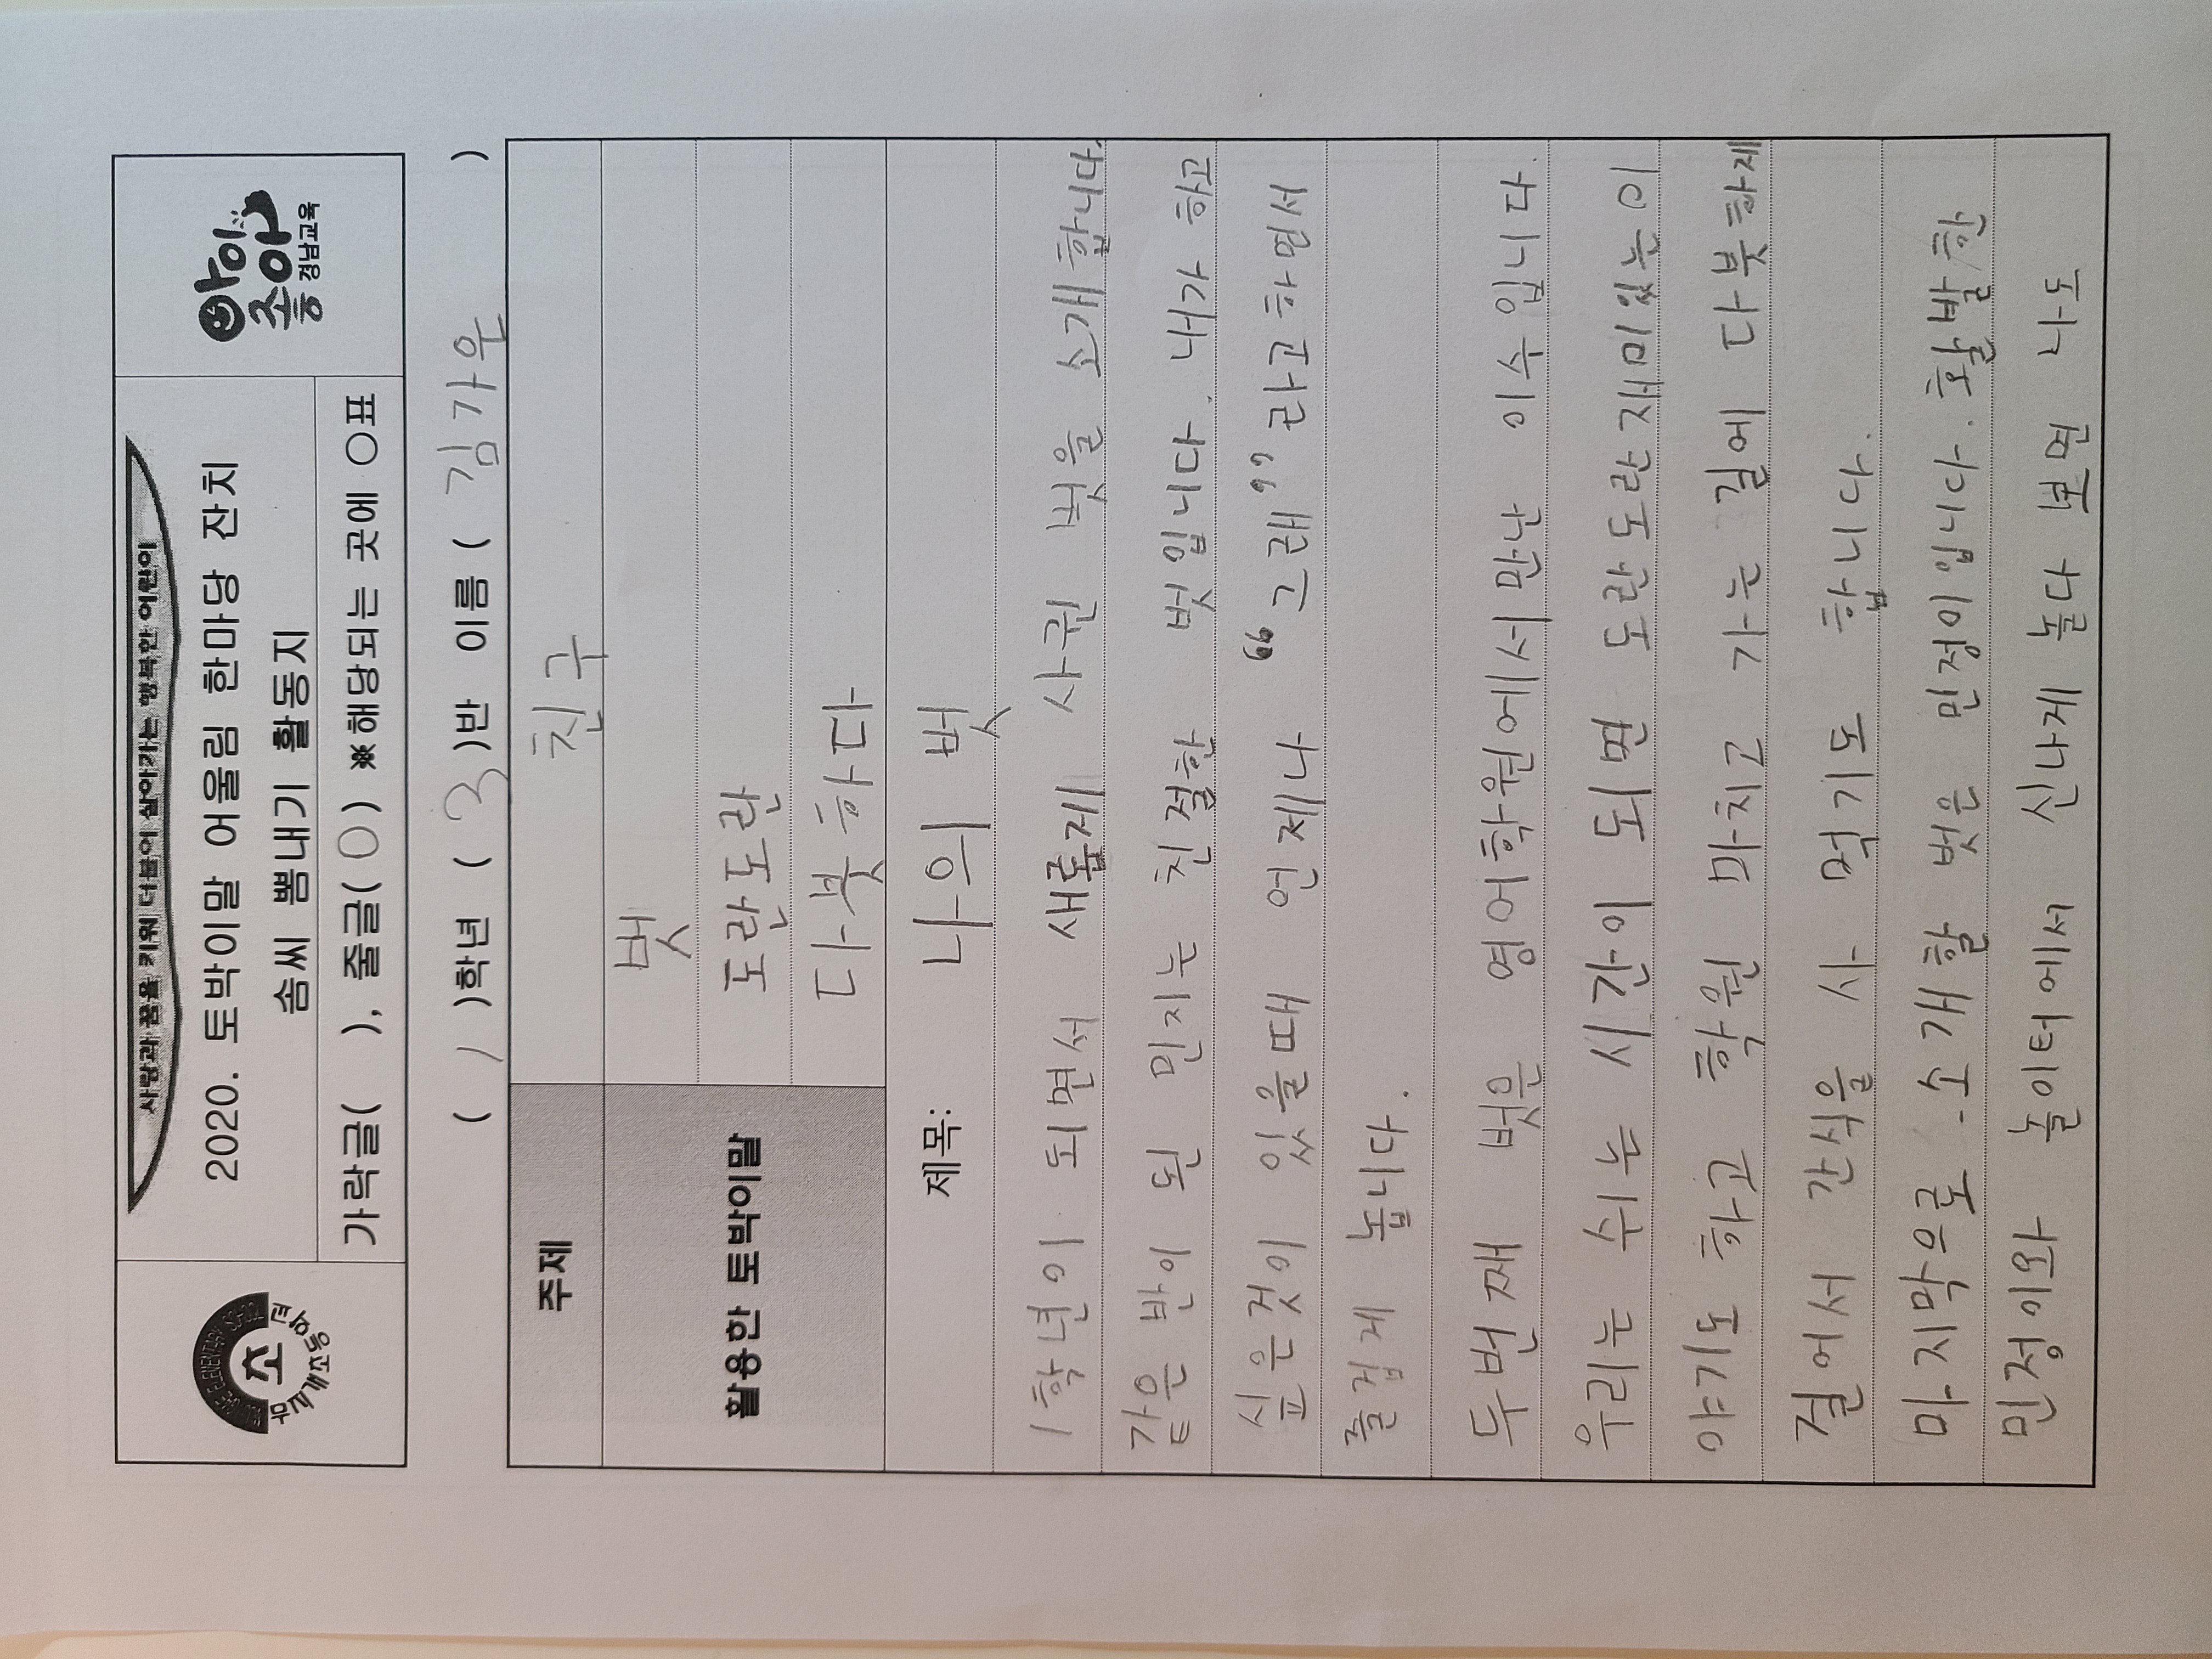 사랑과 꿈을 키워 더불어 살아가는 행복한 어린이
2020. 토박이말 어울림 한마당 잔치
솜씨 뽐내기 활동지
가락글( ), 줄글(○) ※해당되는 곳에 ○표
아이좋아
경남교육
( 1 )학년 ( 3 )반 이름 ( 김가온 )
주제 친구
활용한 토박이말
벗
도란도란
다붓하다
제목: 나의 벗
1학년이 되면서 새롭게 사귄 벗을 소개합니다.
같은 반이 된 민지는 친절한 벗입니다. 내가 하고
싶은것이 있을때 언제나 “그래”라고하면서
즐겁게 놉니다.
두번째 벗은 영어학원에서만난 이수입니다.
우리는 쉬는 시간이 되면 도란도란재미있는이
야기도 하고 학원 마치고 가는 길에 다붓하게
걸어서 간식을 사 먹기도 합니다.
마지막으로 소개할 벗은 민정이입니다. 활발한
민정이와 놀이터에서 신나게 놀다 보면 나도